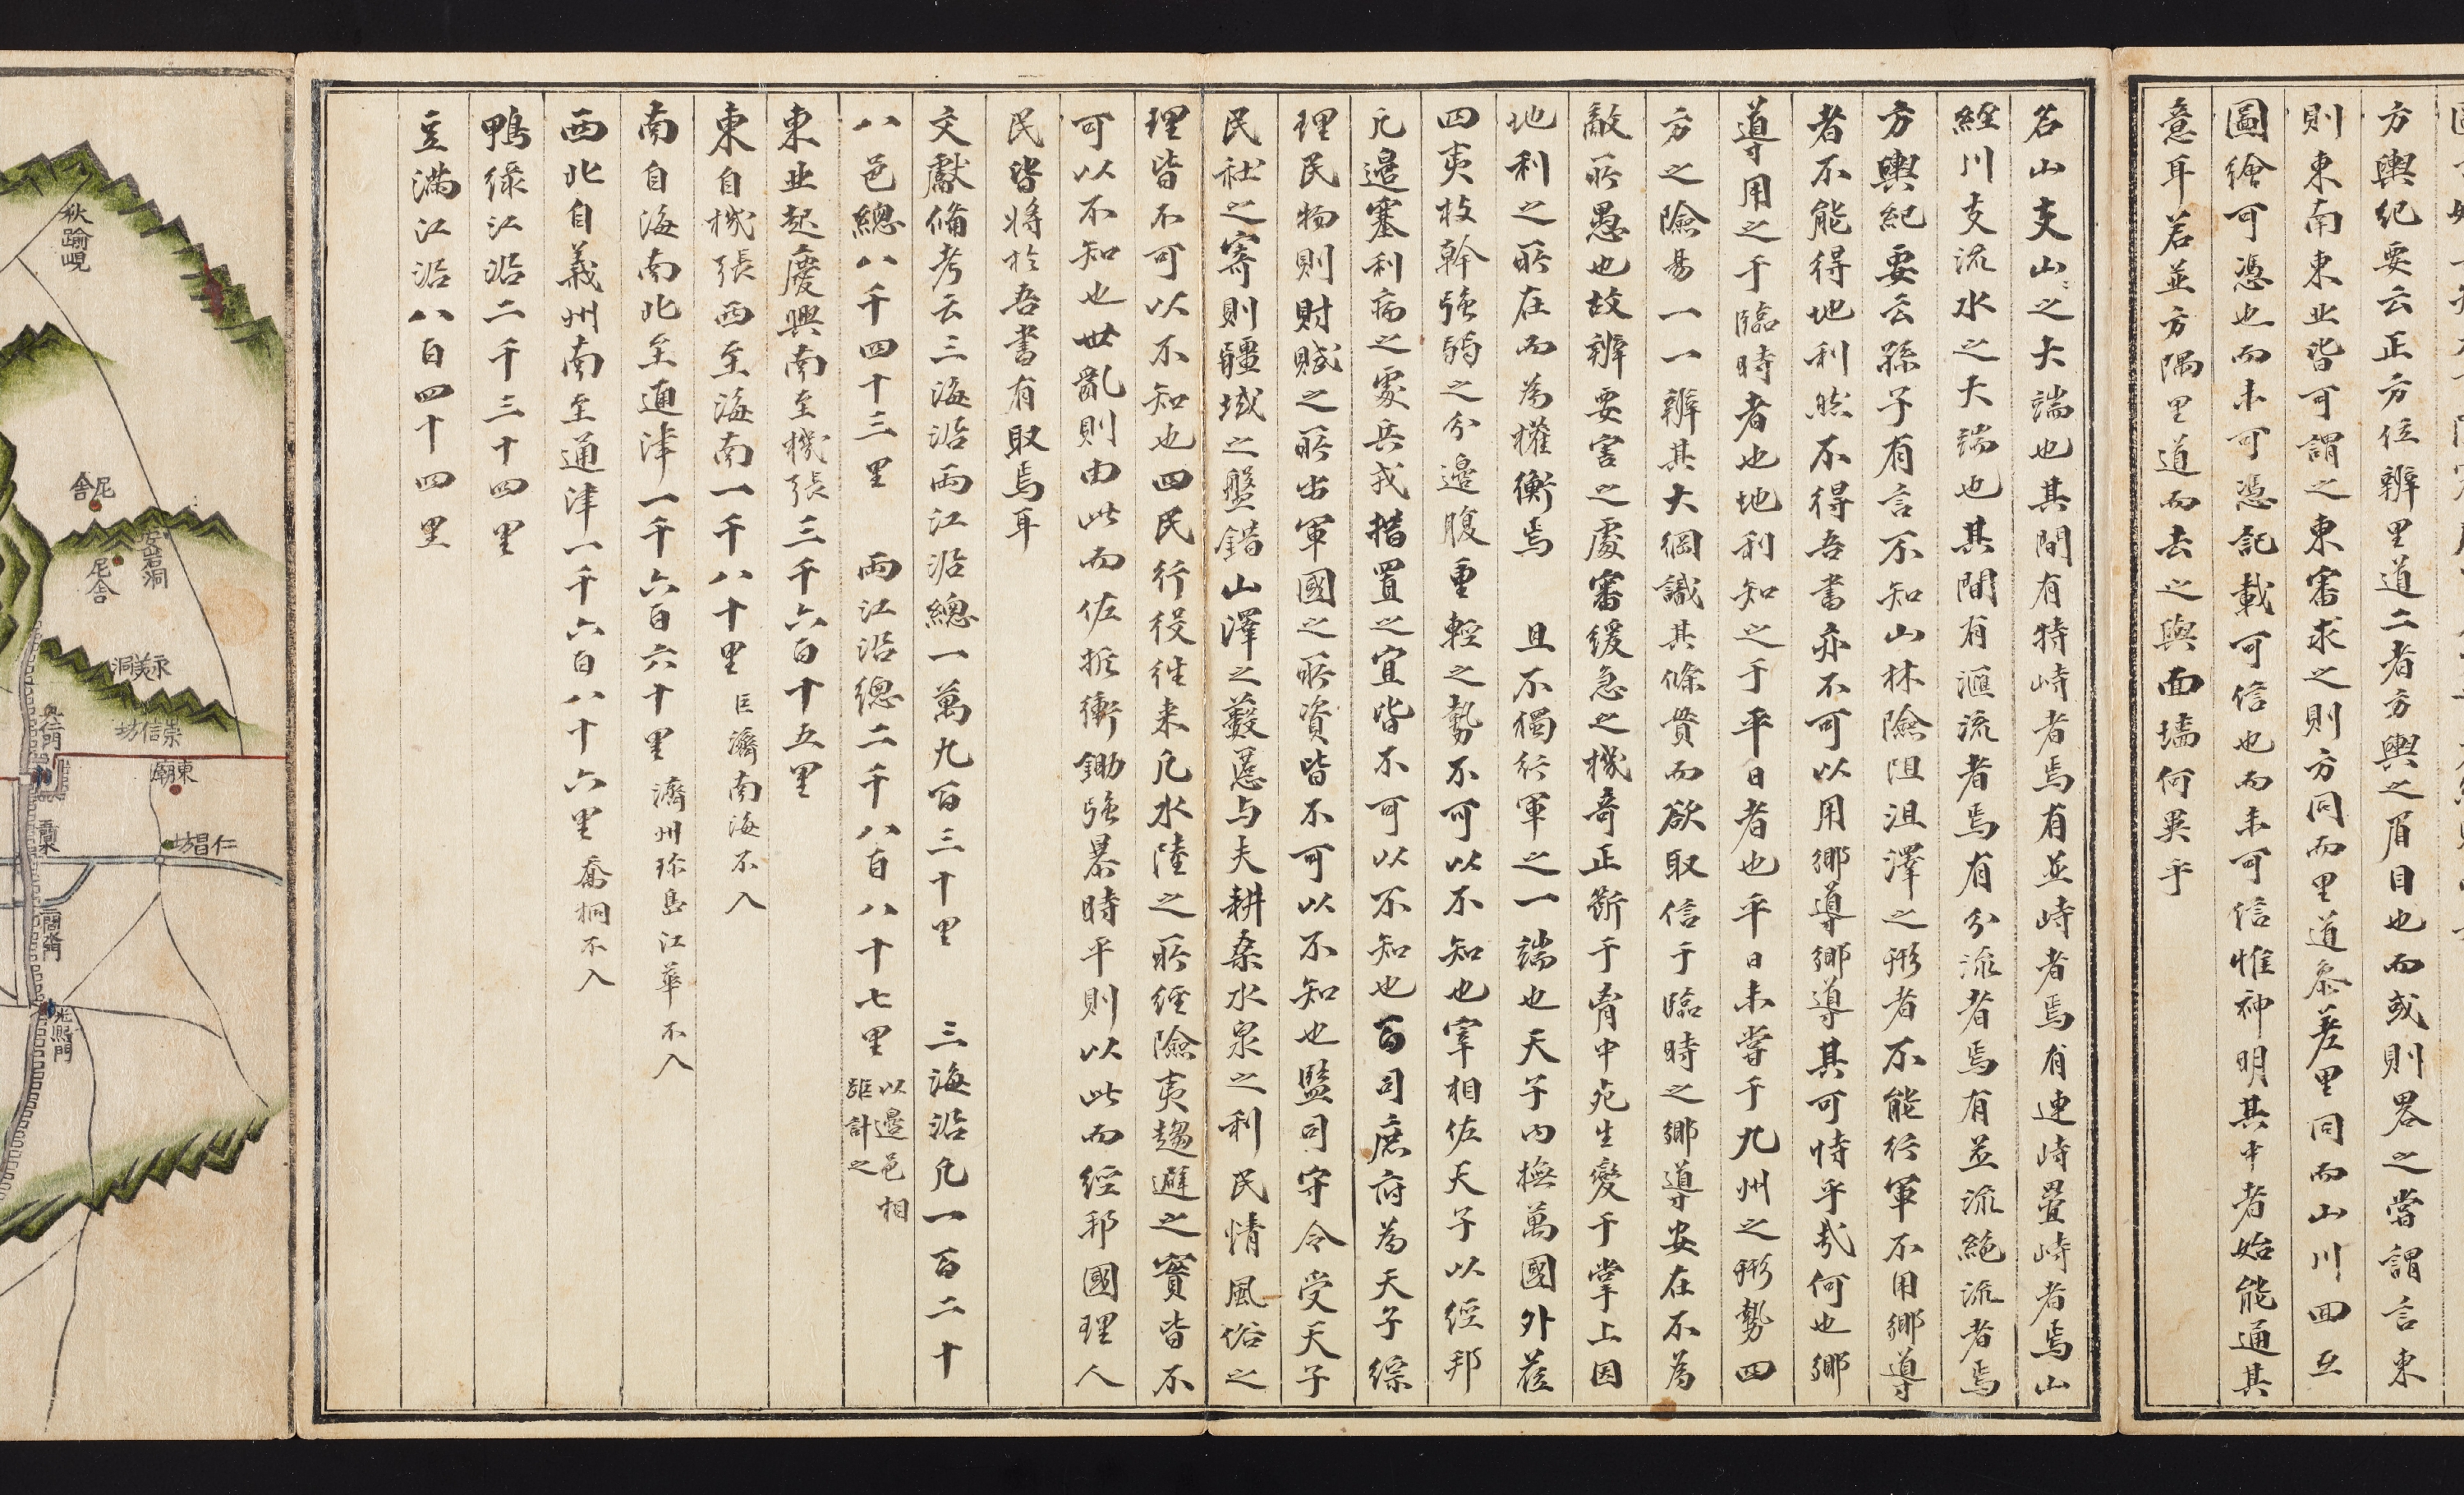 方輿紀要云正方位辨里道二者方輿之眉目也而或則畧之嘗謂言東
則東南東北皆可謂之東審求之則方同而里道叅差里同而山川回互
圖繪可憑也而未可憑記載可信也而未可信惟神明其中者始能通其
意耳若並方隅里道而去之與面墻何異乎
名山支山之大端也其間有特峙者焉有並峙者焉有連峙疊峙者焉山
經川支流水之大端也其間有滙流者焉有分流者焉有並流絶流者焉
方輿紀要云孫子有言不知山林險阻沮澤之形者不能行軍不用鄕導
者不能得地利然不得吾書亦不可以用鄕導鄕導其可恃乎㢤何也鄕
導用之于臨時者也地利知之于平日者也平日未嘗于九州之形勢四
方之險易一一辨其大綱識其條貫而欲取信于臨時之鄕導安在不為
敵所愚也故辨要害之處審緩急之機奇正斷于胷中死生變于掌上因
地利之所在而為權衡焉 且不獨行軍之一端也天子內撫萬國外莅
四夷枝幹強弱之分邊腹重輕之勢不可以不知也宰相佐天子以經邦
凡邊塞利病之處兵戎措置之宜皆不可以不知也百司庶府為天子綜
理民物則財賦之所出軍國之所資皆不可以不知也監司守令受天子
民社之寄則疆域之盤錯山澤之藪慝与夫耕桑水泉之利民情風俗之
理皆不可以不知也四民行役往来凡水陸之所經險夷趨避之實皆不
可以不知也世亂則由此而佐折衝鋤強暴時平則以此而經邦國理人
民皆將於吾書有取焉耳
文獻備考云三海沿兩江沿總一萬九百三十里 三海沿凡一百二十
八邑總八千四十三里 兩江沿總二千八百八十七里 以邊邑相
距計之
東北起慶興南至機張三千六百十五里
東自機張西至海南一千八十里 巨濟南海不入
南自海南北至通津一千六百六十里 濟州珎島江華不入
西北自義州南至通津一千六百八十六里 喬桐不入
鴨綠江沿二千三十四里
豆滿江沿八百四十四里
秋踰峴
尼舍
安岩洞
尼舍
永美洞
崇信坊
惠化門
東廟
仁昌坊
光熙門